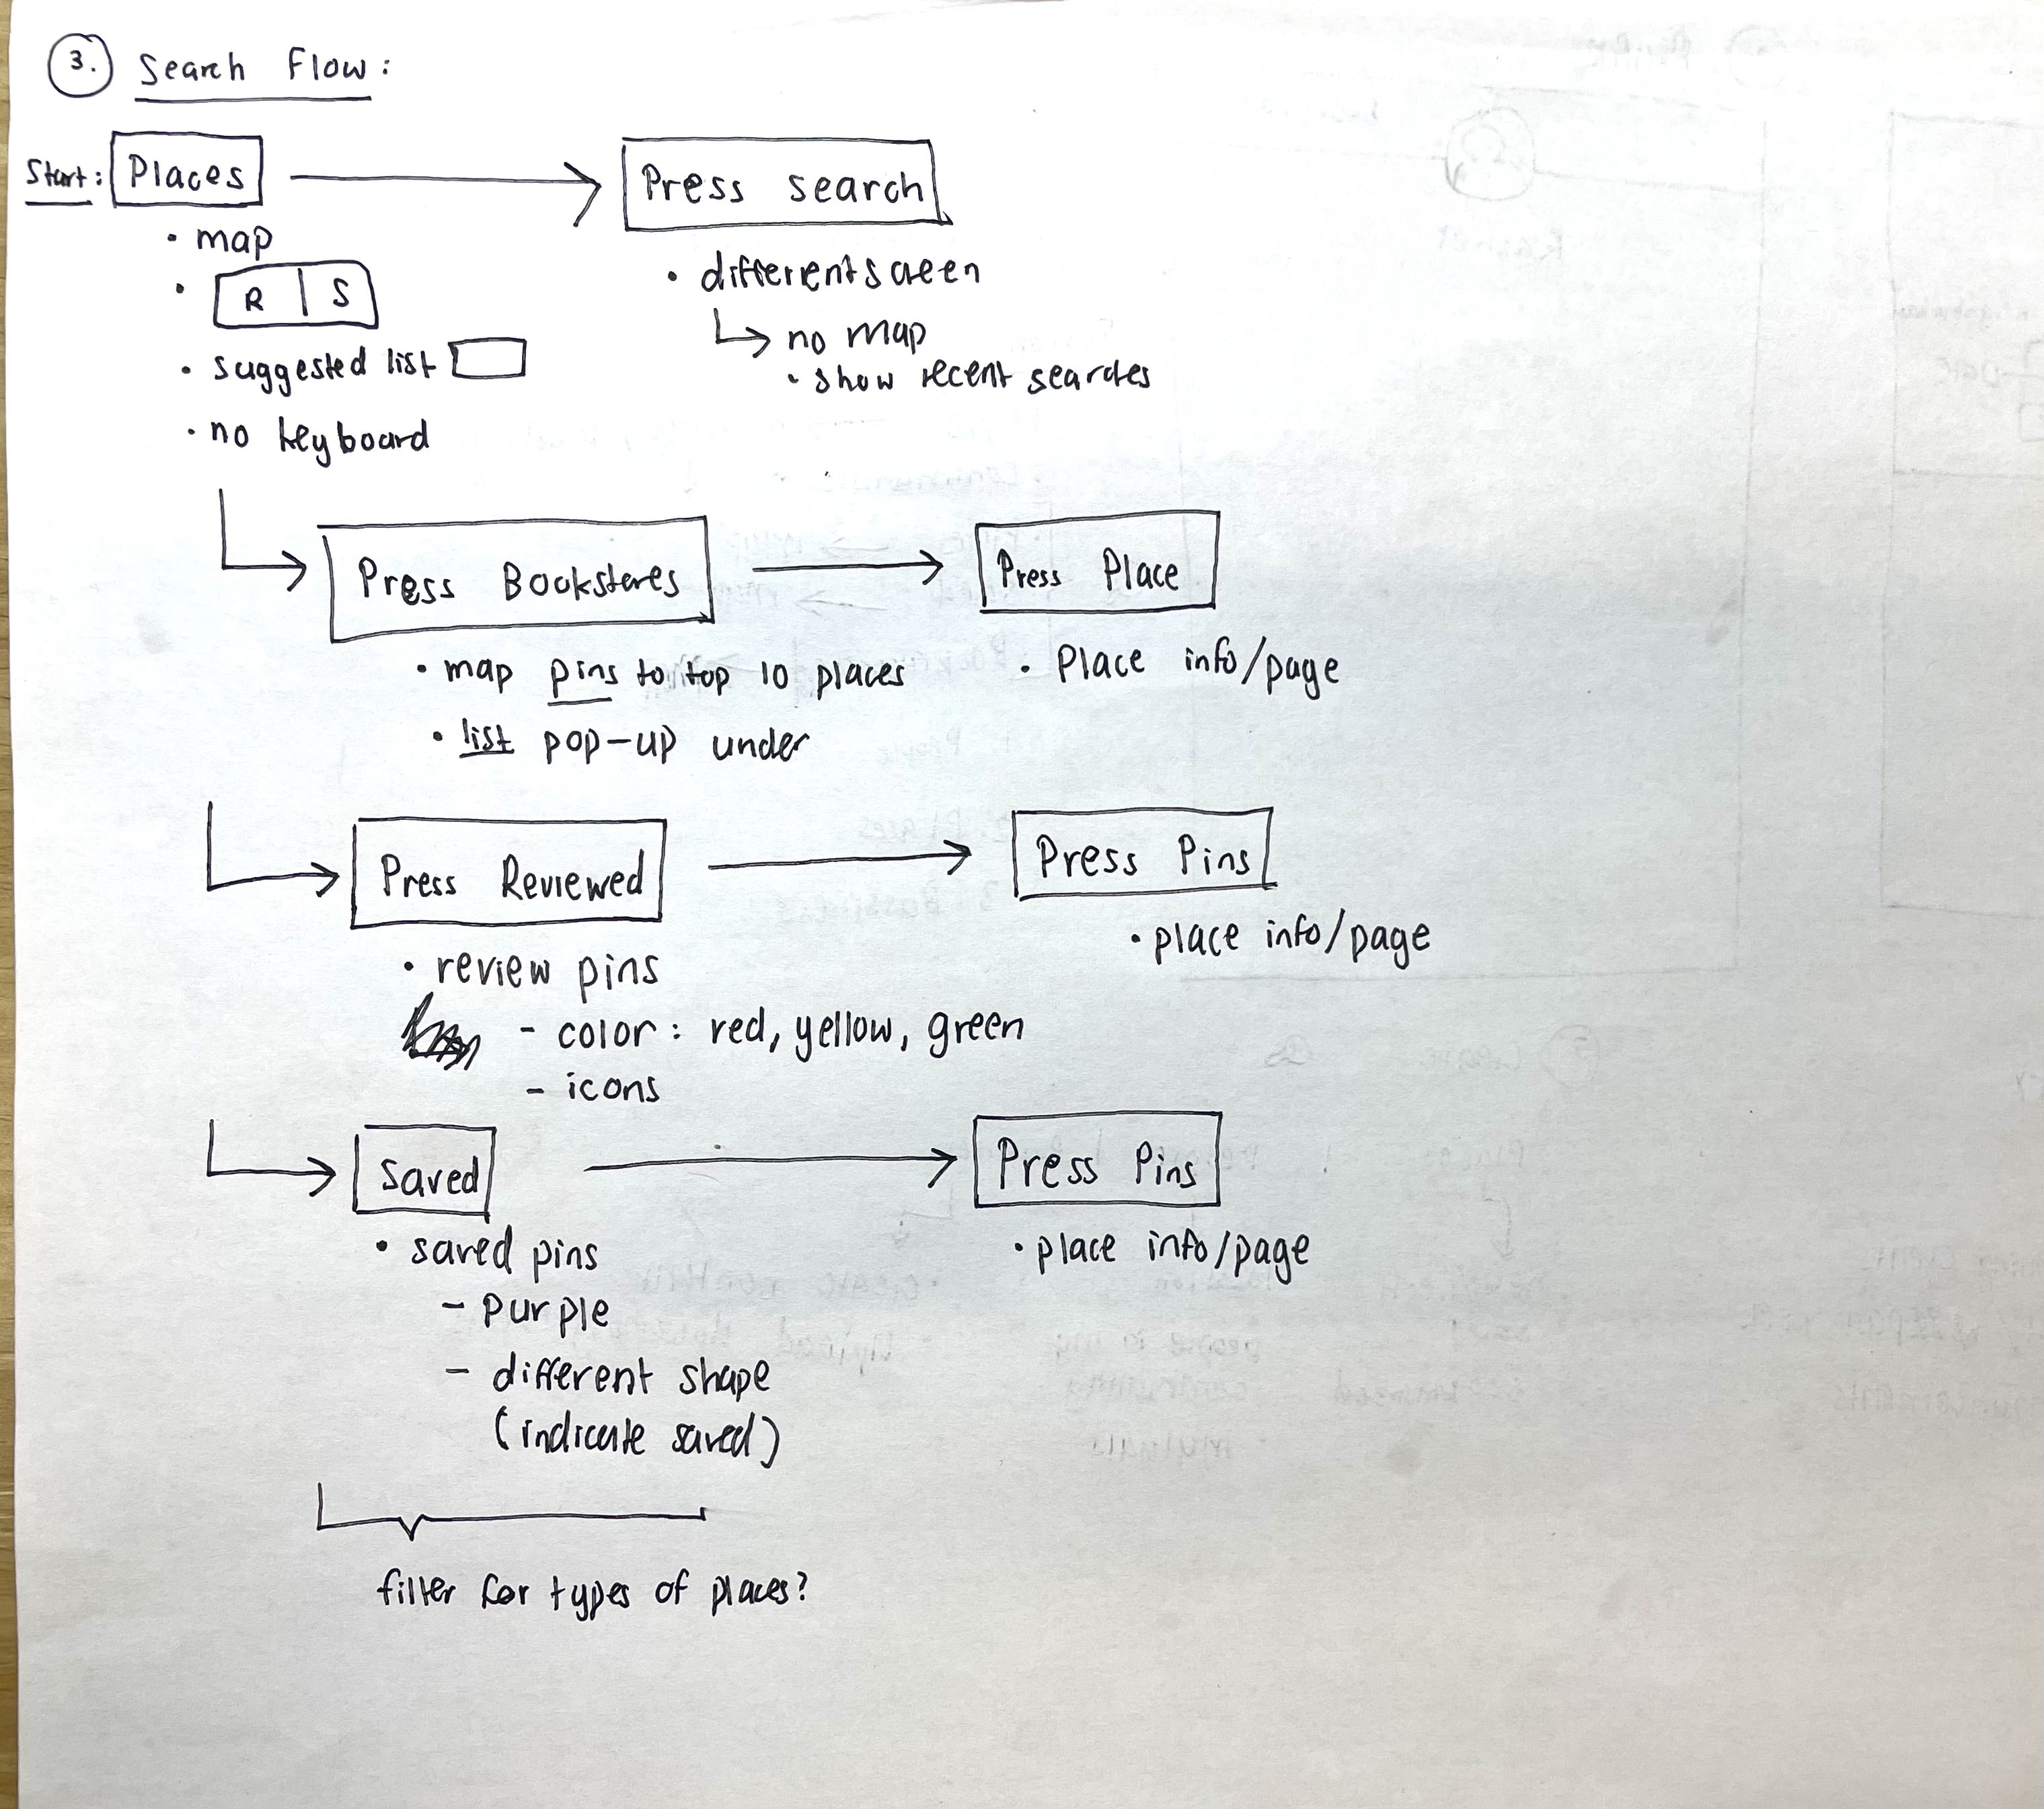 3. Search Flow:
Start: Places
• map
• R | S
• suggested list
• no keyboard
Press search
• different screen
↳ no map
• show recent searches
Press Bookstores
• map pins to top 10 places
• list pop-up under
Press Place
• Place info/page
Press Reviewed
• review pins
- color: red, yellow, green
- icons
Press Pins
• place info/page
Saved
• saved pins
- purple
- different shape
(indicate saved)
Press Pins
• place info/page
filter for types of places?